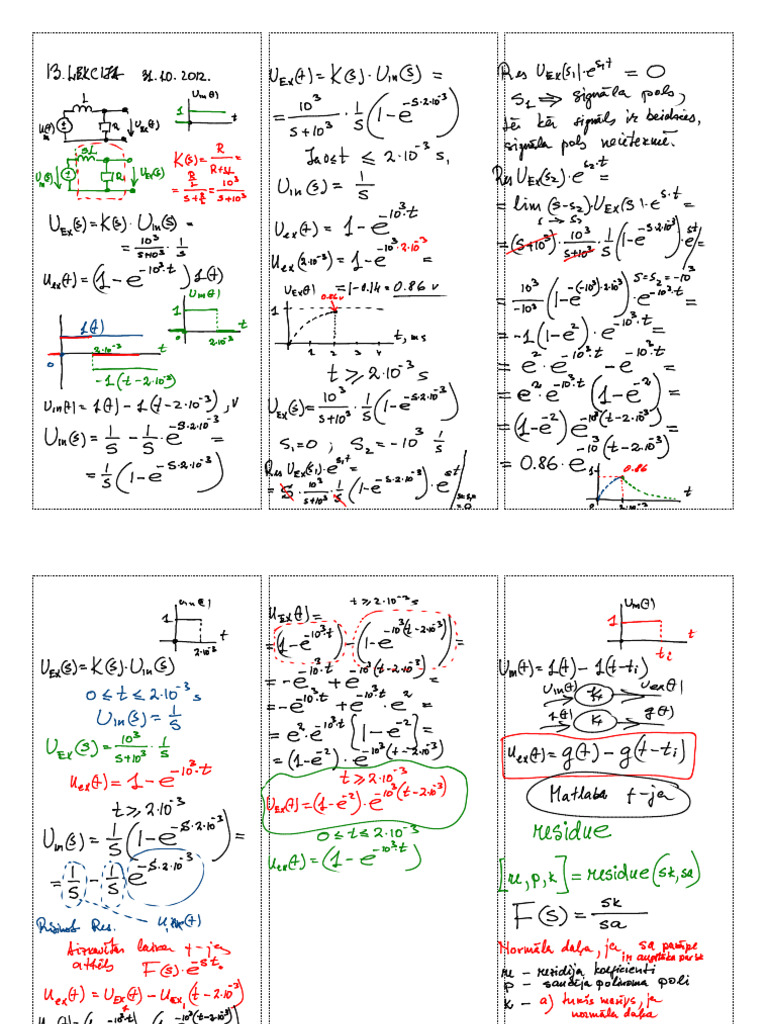 13. LEKCIJA 31.10.2012.
L Uin(t)
1
Uin(t) R Uex(t) t
sL
Uin(s) R Uex(s)
K(s) = R/(R+sL) =
= (R/L)/(s+R/L) = 10³/(s+10³)
Uex(s) = K(s)·Uin(s) =
= 10³/(s+10³) · 1/s
uex(t) = (1−e^(−10³·t)) 1(t)
Uin(t)
1
0 2·10⁻³ t
1(t)
2·10⁻³ t
0
−1(t−2·10⁻³)
Uin(t) = 1(t) − 1(t−2·10⁻³), V
Uin(s) = 1/s − 1/s·e^(−s·2·10⁻³) =
= 1/s (1−e^(−s·2·10⁻³))
UEx(t) = K(s)·Uin(s) =
= 10³/(s+10³) · 1/s (1−e^(−s·2·10⁻³))
Ja 0≤t ≤ 2·10⁻³ s,
Uin(s) = 1/s
Uex(t) = 1−e^(−10³·t)
uex(2·10⁻³) = 1−e^(−10³·2·10⁻³) =
= 1−0.14 = 0.86 v
UEx(t)
0.86 v
1
1 2 3 4 t, ms
t ≥ 2·10⁻³ s
UEx(s) = 10³/(s+10³) · 1/s (1−e^(−s·2·10⁻³))
S₁=0 ; S₂ = −10³ 1/s
Res UEx(s₁)·e^(s₁t) =
= s · 10³/(s+10³) · 1/s (1−e^(−s·2·10⁻³))·e^(st) | s=s₁= =0
Res UEx(s₁)·e^(s₁t) = 0
S₁ ⇒ signāla pols,
tā kā signāls ir beidzies,
signāla pols neietekmē.
Res UEx(s₂)·e^(s₂·t) =
= lim (s−s₂)·UEx(s)·e^(s·t) =
s → s₂
= (s+10³)· 10³/(s+10³) · 1/s (1−e^(−s·2·10⁻³))·e^(st) | =
s=s₂=−10³
10³/−10³ (1−e^(−(−10³)·2·10⁻³))·e^(−10³·t) =
= −1(1−e²)·e^(−10³·t) =
= e²·e^(−10³·t) − e^(−10³·t) =
= e²·e^(−10³·t) (1−e⁻²) =
= (1−e⁻²) e^(−10³(t−2·10⁻³)) =
= 0.86·e^(−10³(t−2·10⁻³))
1 0.86
0 2·10⁻³ t
Uin(t)
1
t
2·10⁻³
UEx(s) = K(s)·Uin(s)
0 ≤ t ≤ 2·10⁻³ s
Uin(s) = 1/s
UEx(s) = 10³/(s+10³) · 1/s
uex(t) = 1−e^(−10³·t)
t ≥ 2·10⁻³
Uin(s) = 1/s (1−e^(−s·2·10⁻³)) =
= 1/s − 1/s e^(−s·2·10⁻³)
Res.
attēls F(s)·e^(st).
uex(t) = UEx(t) − UEx₁(t−2·10⁻³)
t ≥ 2·10⁻³ s
uEx(t) =
= (1−e^(−10³·t)) − (1−e^(−10³(t−2·10⁻³))) =
= −e^(−10³·t) + e^(−10³(t−2·10⁻³)) =
= −e^(−10³·t) + e^(−10³·t)·e² =
= e²·e^(−10³t) [1−e⁻²] =
= (1−e⁻²)·e^(−10³(t−2·10⁻³))
t ≥ 2·10⁻³
UEx(t) = (1−e⁻²)·e^(−10³(t−2·10⁻³))
0 ≤ t ≤ 2·10⁻³
uex(t) = (1−e^(−10³t))
Uin(t)
1
t
ti
Uin(t) = 1(t) − 1(t−ti)
Uin(t) K uex(t)
1(t) K g(t)
uex(t) = g(t) − g(t−ti)
Matlaba f-ja
residue
[r, p, k] = residue(sk, sa)
F(s) = sk/sa
Normāla daļa, ja sa pakāpe
ir augstāka par sk
r – residija koeficienti
p – saucēja polinoma poli
k – a) tukšs masīvs, ja
normāla daļa